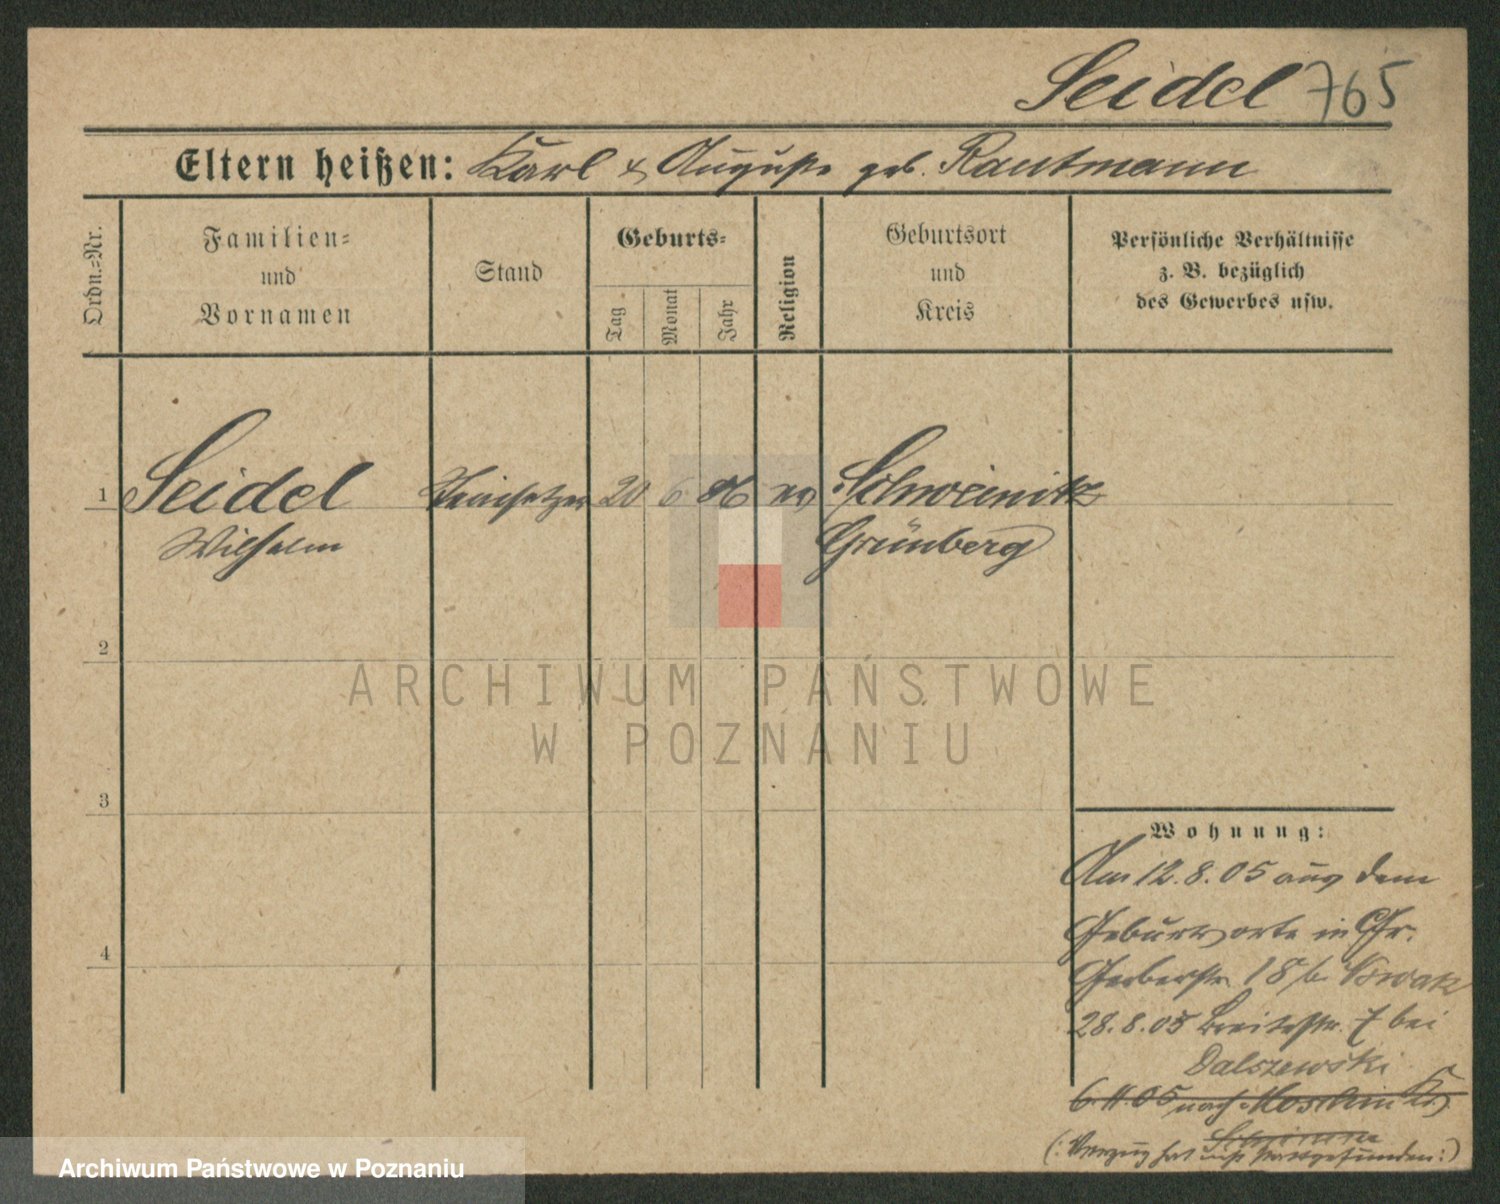 Seidel 765
Eltern heißen: Karl & Auguste geb. Rautmann
Ordn.-Nr.
Familien-
und
Vornamen
Stand
Geburts-
Tag
Monat
Jahr
Religion
Geburtsort
und
Kreis
Persönliche Verhältnisse
z. B. bezüglich
des Gewerbes usw.
1 Seidel Steinsetzer 20 6 86 ev Schweinitz
Wilhelm Grünberg
2
ARCHIWUM PAŃSTWOWE
W POZNANIU
3
Wohnung:
Am 12.8.05 aus dem
Geburtsorte in Gr.
4
Gerberstr. 18 b. Nowak
28.8.05 Breitestr. 7 bei
Dalszewski
6.11.05 nach Moschin Kr.
Schrimm
(: Verzug hat nicht stattgefunden :)
Archiwum Państwowe w Poznaniu